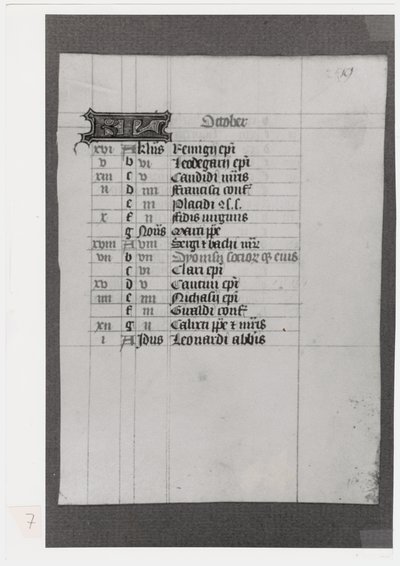 KL October
xvi A Klūs Remigij ep̄i
v b vi Leodegarij ep̄i
xiii c v Candidi m̄ris
ii d iiii Francisci conf̄
e iii Placidi
x f ii Fidis virginis
g Noūs Marci pp̄e
xviii A viii Sergi & bachi
vii b vii Dyonisij socior eius
c vi Clari ep̄i
xv d v ep̄i
iiii e iiii Nichasij ep̄i
f iii Giraldi conf̄
xii g ii Calixti pp̄e & m̄ris
i A Jdus Leonardi abb̄is
7